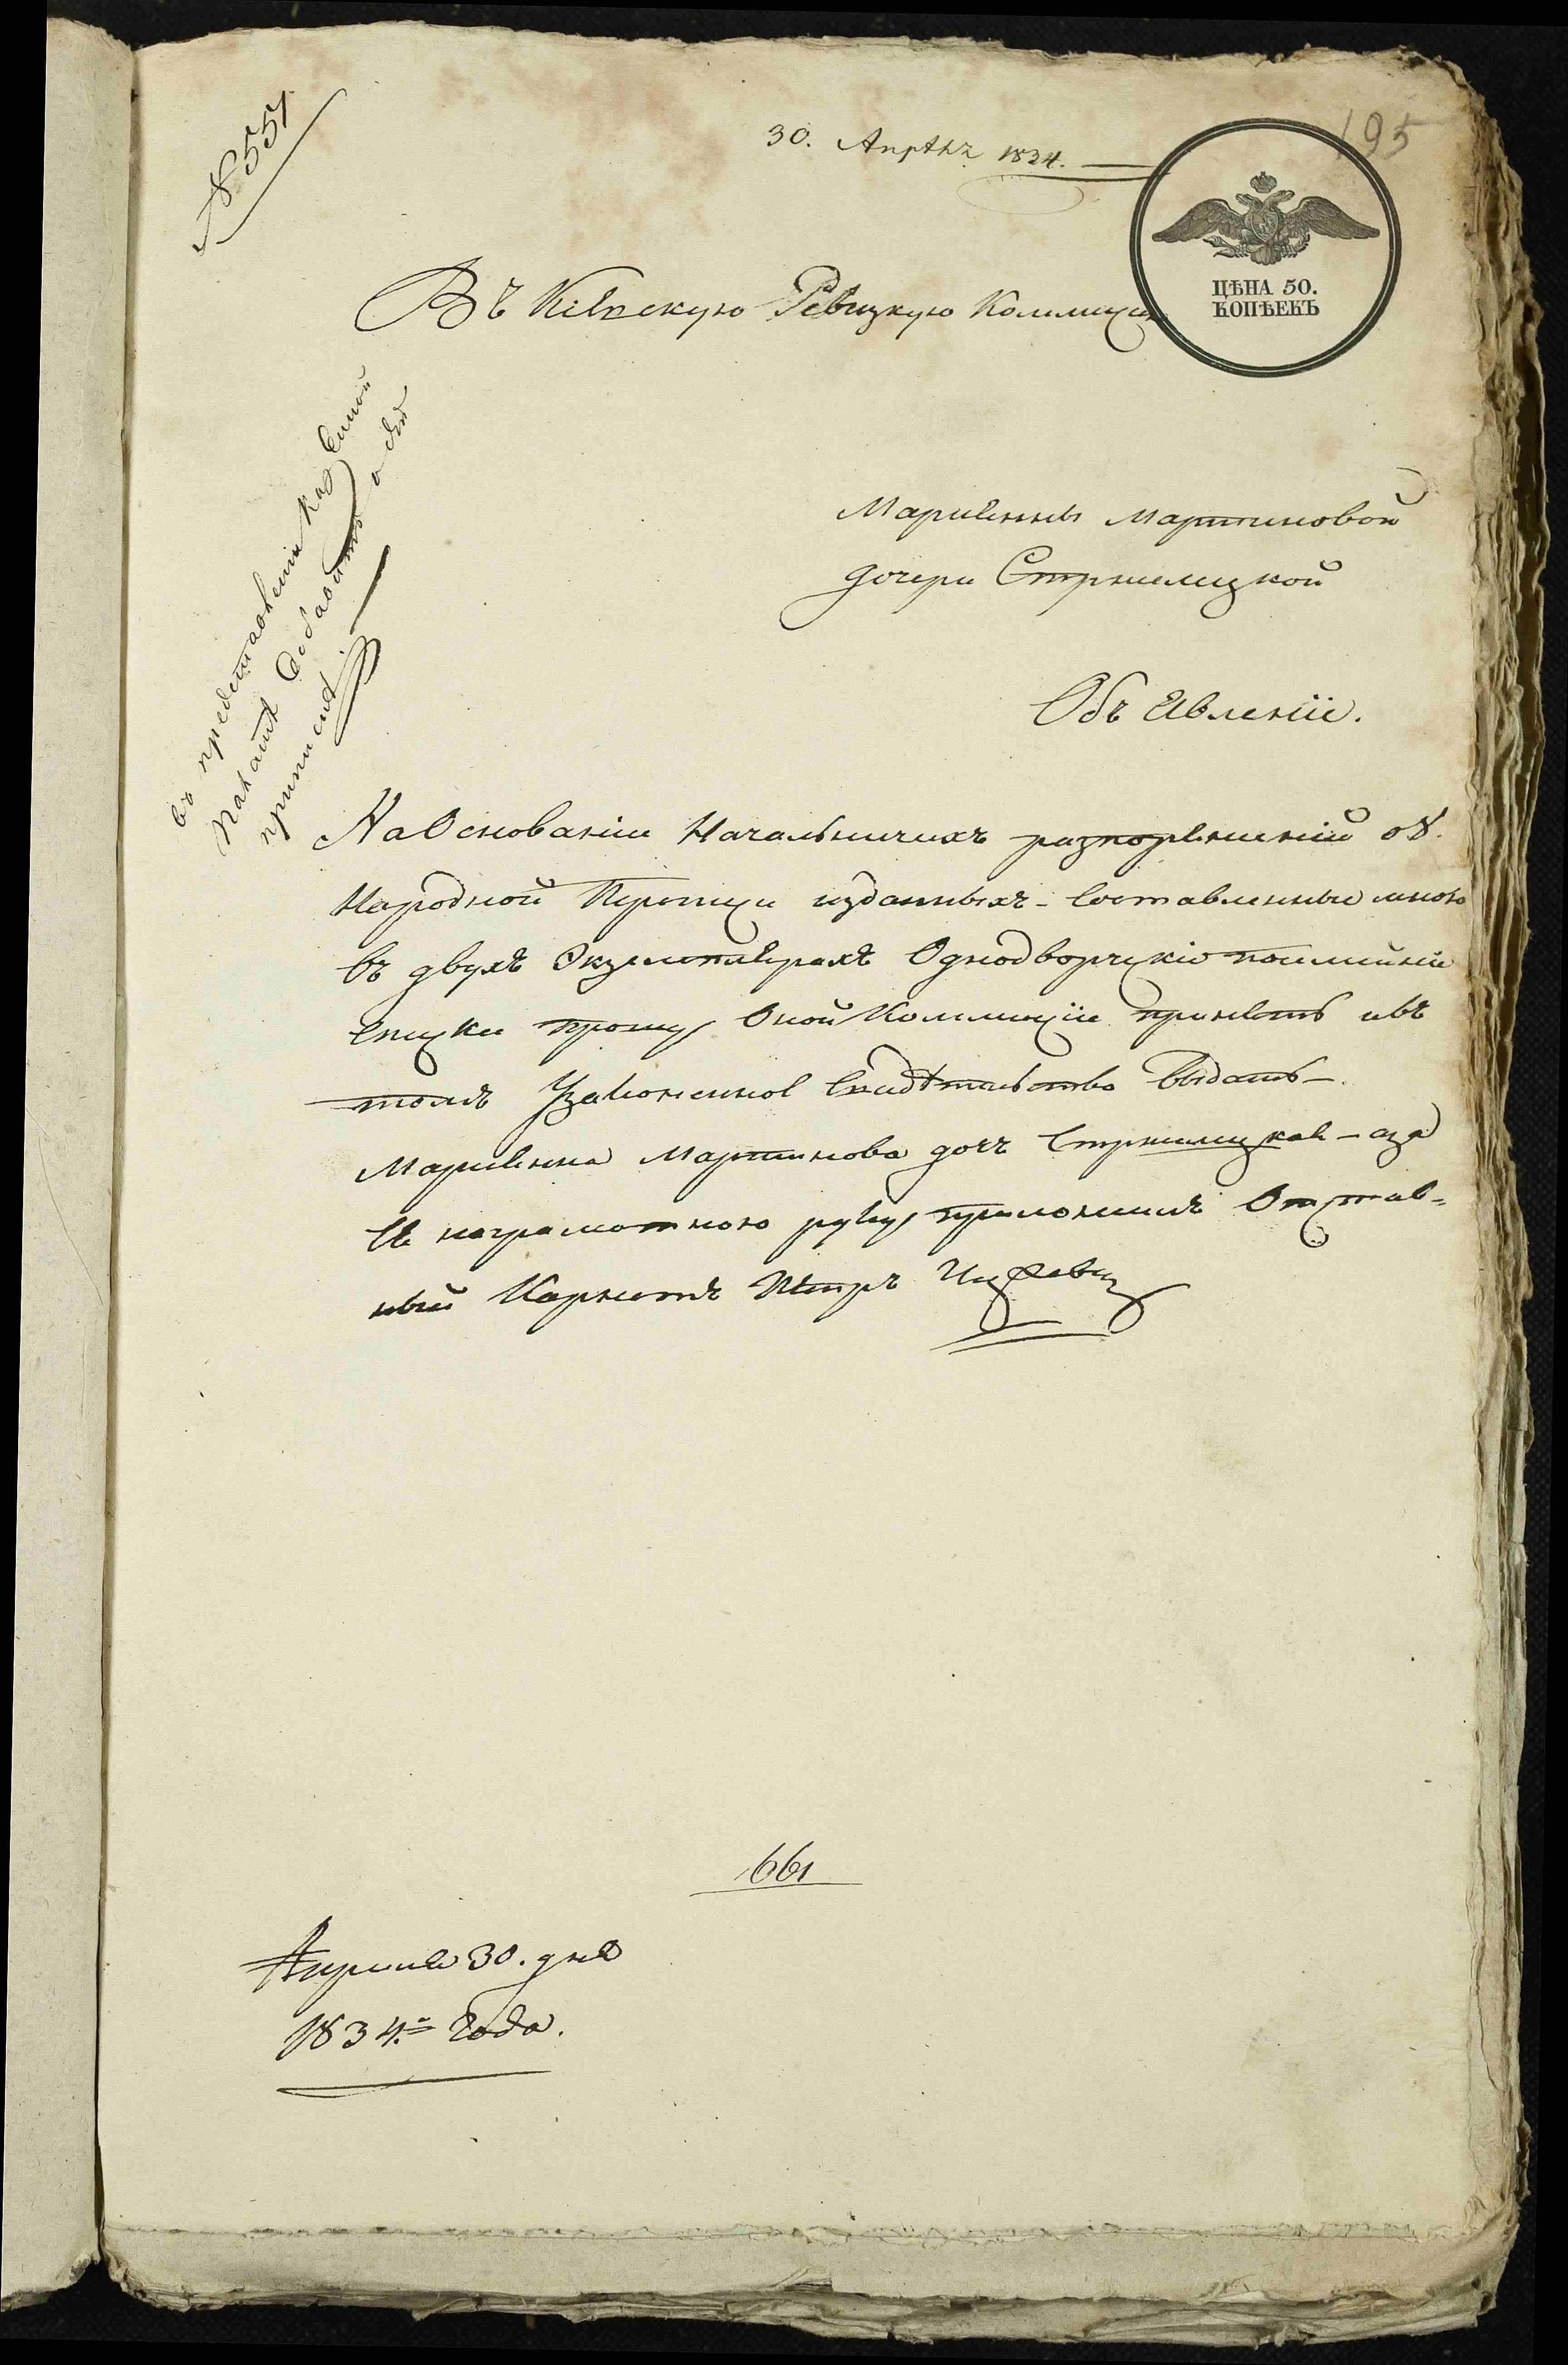 № 557
30. Апрѣлѧ 1834.
195
ЦѢНА 50.
КОПѢЕКЪ
Въ Кіевскую Ревизкую Коммисію
въ представленіи Казенной
Палатѣ
припискѣ
Мариянны Мартиновой
дочери Стржелицкой
Объ Явленіе.
На Основаніи Началничихъ разпоряжений об.
Народной Переписи изданныхъ Составленные мною
въ двухъ Экземплярахъ Однодворческіе поимѣнніе
списки прошу Оной Коммисіи принять ивъ
томъ Узаконенное Свидѣтельство Выдать
Мариянна Мартинова дочь Стржелицкая - аза
Ея награмотною руку приложилъ Отстав-
ный Карнетъ Петръ
661
Апреля 30. дня
1834. Года.